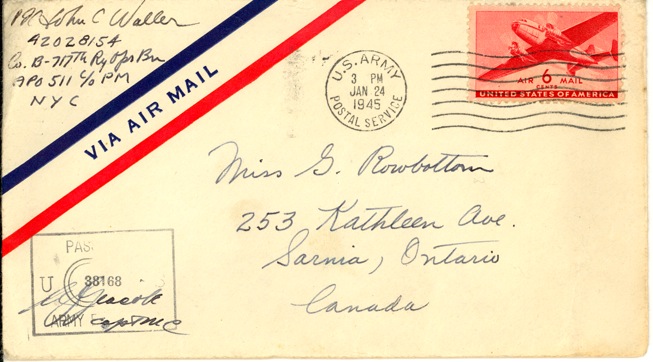 Pfc John C Waller
42028154
Co. B-717th Ry Ops Bn
APO 511 c/o PM
NYC
VIA AIR MAIL
U.S. ARMY
3 PM
JAN 24
1945
POSTAL SERVICE
AIR 6 MAIL
CENTS
UNITED STATES OF AMERICA
Miss G. Rowbottom
253 Kathleen Ave.
Sarnia, Ontario
Canada
PAS
U S
38168
ARMY
Capt MC